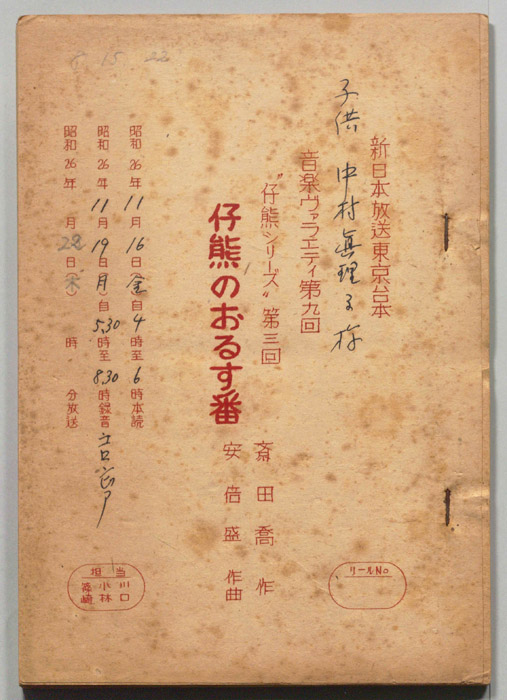 新日本放送東京台本
子供 中村眞理子様
音楽ヴァラエティ第九回
“仔熊シリーズ”第三回
仔熊のおるす番
斎田喬 作
安倍盛 作曲
昭和26年11月16日(金)自4時至6時本読
昭和26年11月19日(月)自5.30時至8.30時録音
昭和26年 月22日(木) 時 分放送
リールNo
担当
川口
小林
篠崎